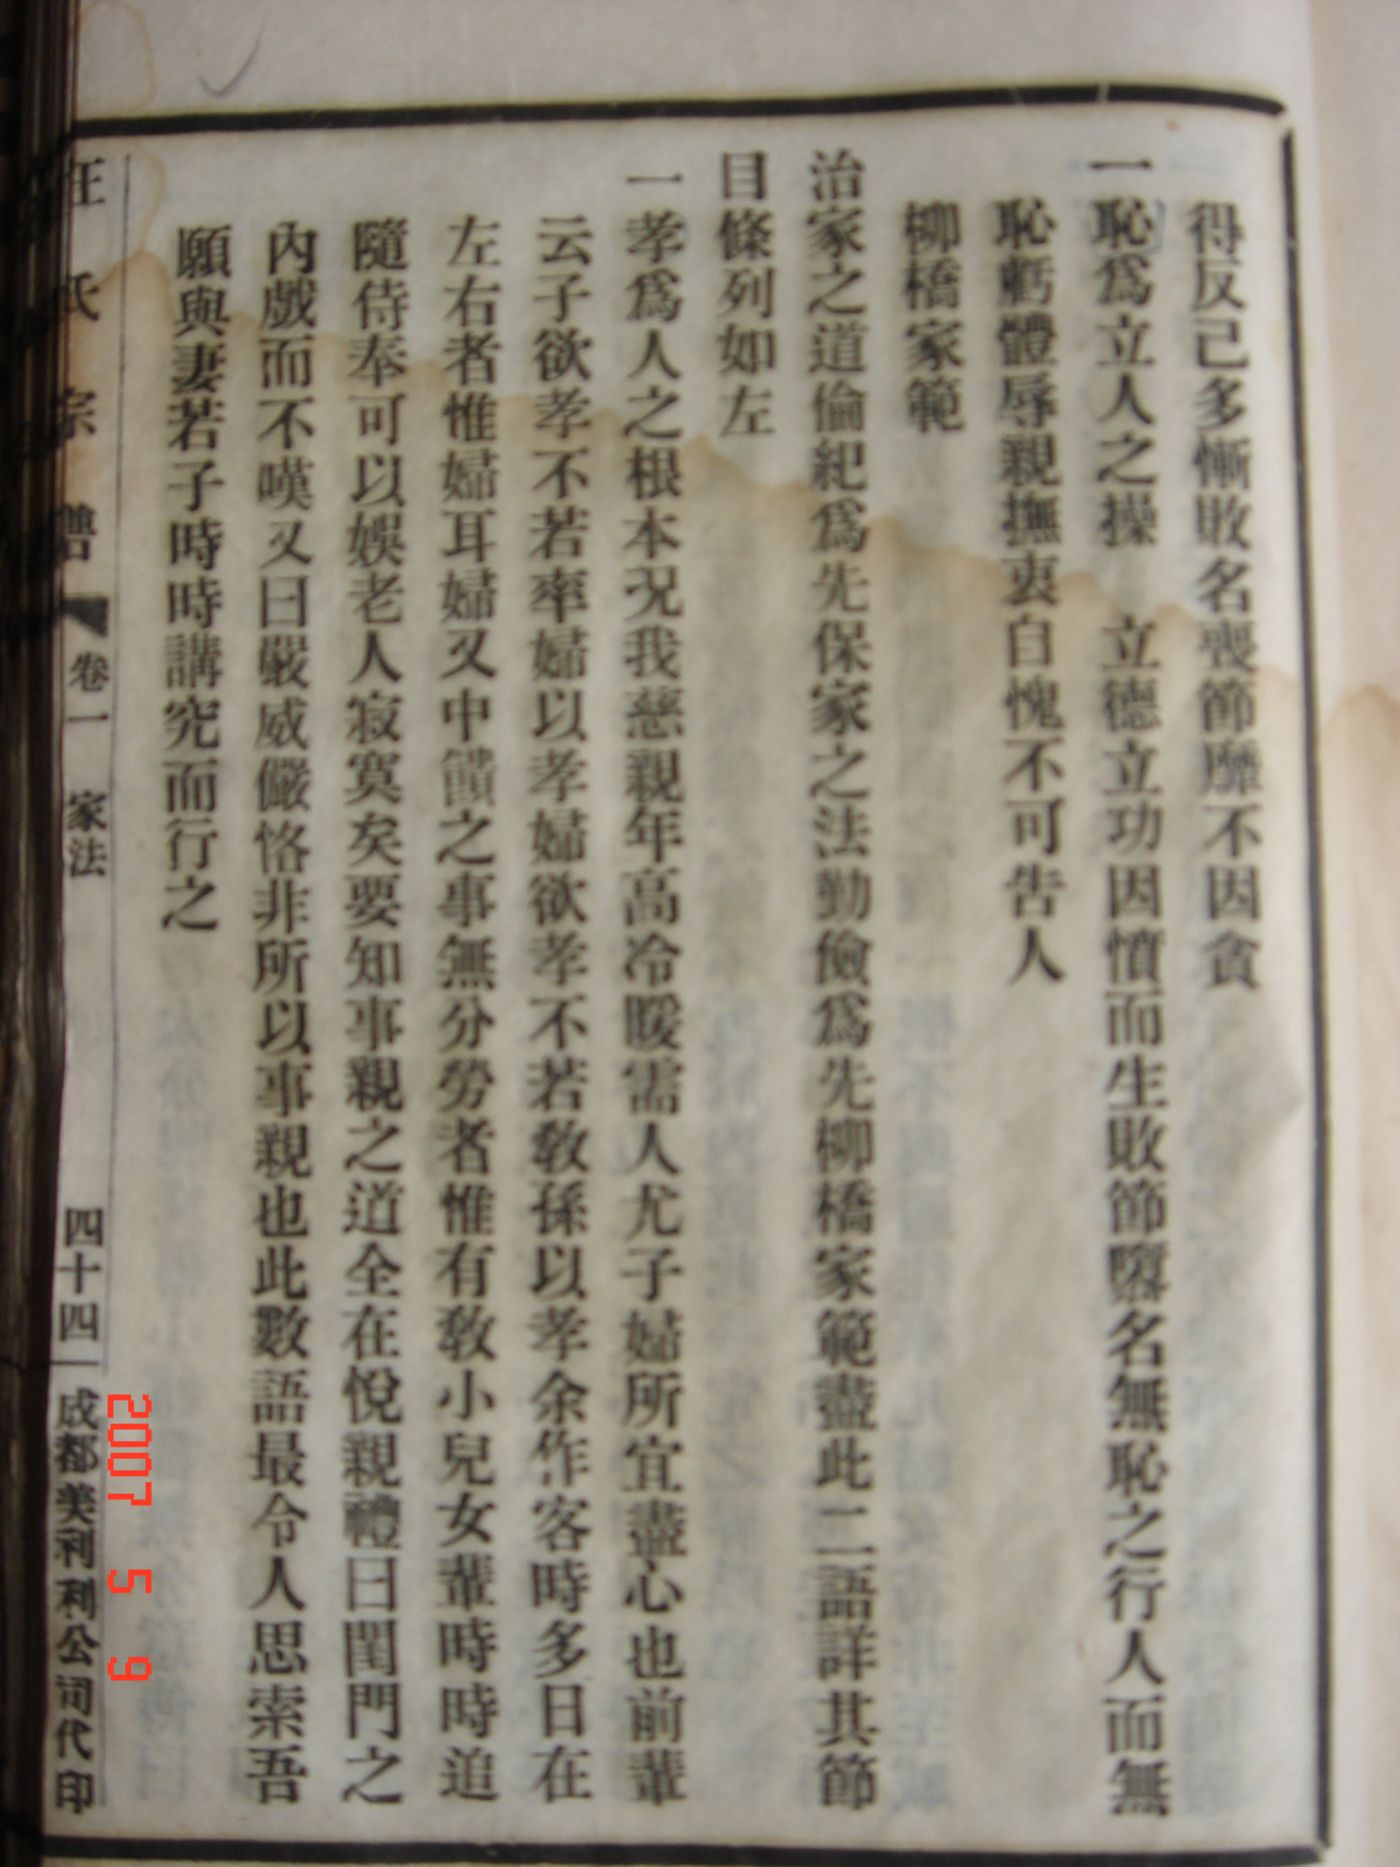 得反己多慚敗名喪節靡不因貪
一恥爲立人之操　立德立功因憤而生敗節隳名無恥之行人而無
恥虧體辱親撫衷自愧不可告人
柳橋家範
治家之道倫紀爲先保家之法勤儉爲先柳橋家範盡此二語詳其節
目條列如左
一孝爲人之根本況我慈親年高冷暖需人尤子婦所宜盡心也前輩
云子欲孝不若率婦以孝婦欲孝不若敎孫以孝余作客時多日在
左右者惟婦耳婦又中饋之事無分勞者惟有敎小兒女輩時時追
隨侍奉可以娛老人寂寞矣要知事親之道全在悅親禮曰閨門之
內戲而不嘆又曰嚴威儼恪非所以事親也此數語最令人思索吾
願與妻若子時時講究而行之
汪氏宗譜 卷一 家法 四十四 成都美利利公司代印
2007 5 9